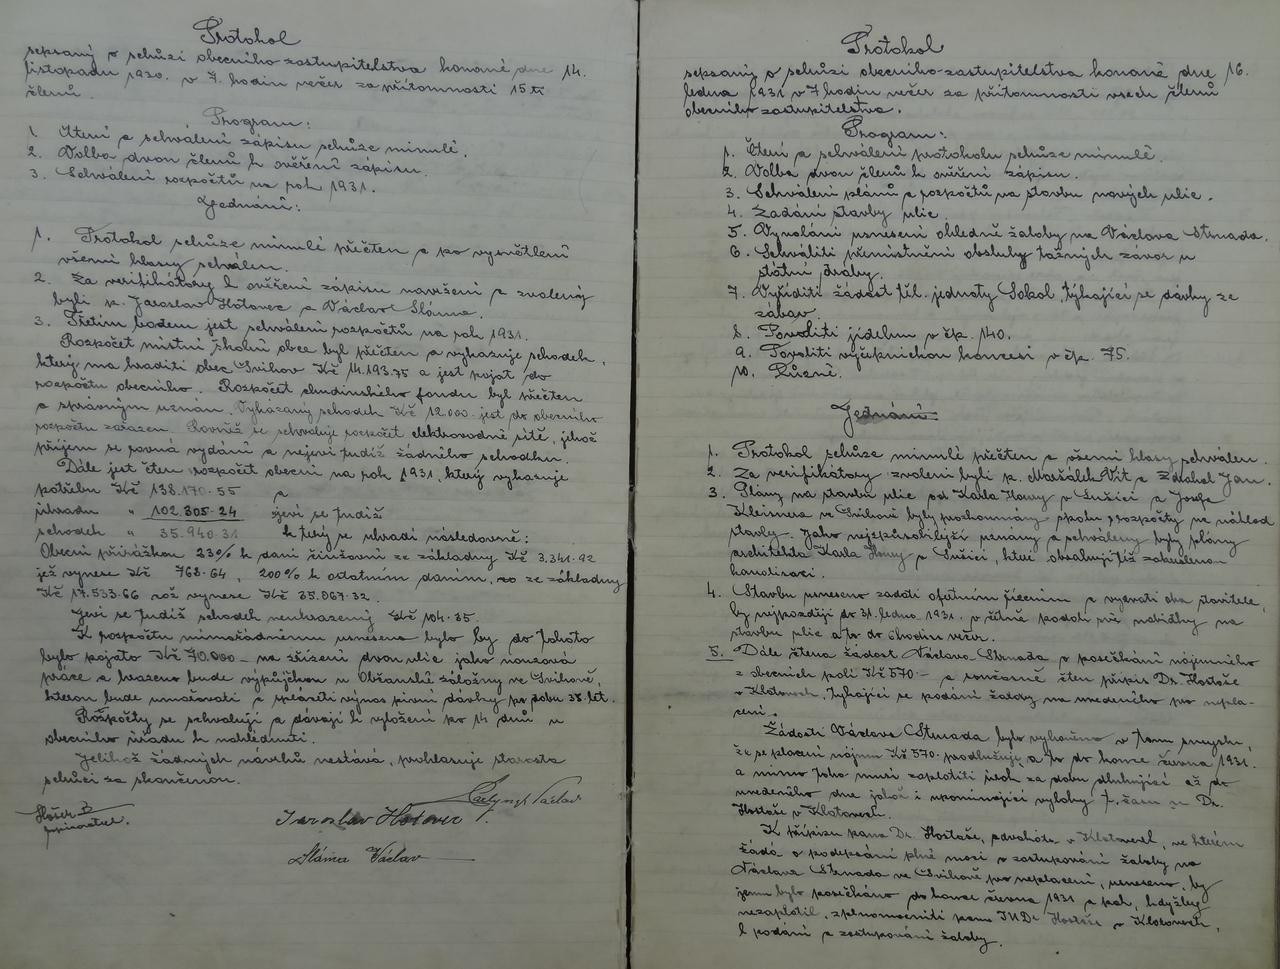 Protokol
sepsaný o schůzi obecního zastupitelstva konané dne 14.
listopadu 1930. v 7. hodin večer za přítomnosti 15ti
členů.
Program:
1. Čtení a schválení zápisu schůze minulé.
2. Volba dvou členů k ověření zápisu.
3. Schválení rozpočtů na rok 1931.
Jednání:
1. Protokol schůze minulé přečten a po vysvětlení
všemi hlasy schválen.
2. Za verifikátory k ověření zápisu navrženi a zvoleny
byli p. Jaroslav Hotovec a Václav Sláma.
3. Třetím bodem jest schválení rozpočtů na rok 1931.
Rozpočet místní školní obce byl přečten a vykazuje schodek,
který má hraditi obec Švihov Kč 14.193.75 a jest pojat do
rozpočtu obecního. Rozpočet chudinského fondu byl přečten
a správným uznán. Vykázaný schodek Kč 12.000.- jest do obecního
rozpočtu zařazen. Rovněž se schvaluje rozpočet elektrovodné sítě, jehož
příjem se rovná vydání a nejeví tudíž žádného schodku.
Dále jest čten rozpočet obecní na rok 1931, který vykazuje
potřebu Kč 138.170.55 a
úhradu " 102.305.24 jeví se tudíž
schodek " 35.940.31 který se uhradí následovně:
Obecní přirážkou 23% k dani činžovní ze základny Kč 3.341.92
jež vynese Kč 768.64, 200% k ostatním daním, co ze základny
Kč 17.533.66 což vynese Kč 35.067.32.
Jeví se tudíž schodek neuhrazený Kč 104.35.
K rozpočtu mimořádnému usneseno bylo by do tohoto
bylo pojato Kč 70.000.- na zřízení dvou ulic jako nouzová
práce a hrazeno bude výpůjčkou u Občanské záložny ve Švihově,
kterou bude umořovati a spláceti výnos pivní dávky po dobu 38 let.
Rozpočty se schvalují a dávají k vyložení po 14 dnů u
obecního úřadu k nahlédnutí.
Jelikož žádných návrhů nestává, prohlašuje starosta
schůzi za skončenou.
zapisovatel.
Václav
Jaroslav Hotovec
Sláma Václav
Protokol
sepsaný o schůzi obecního zastupitelstva konané dne 16.
ledna 1931 v 7 hodin večer za přítomnosti všech členů
obecního zastupitelstva.
Program:
1. Čtení a schválení protokolu schůze minulé.
2. Volba dvou členů k ověření zápisu.
3. Schválení plánů a rozpočtů na stavbu nových ulic.
4. Zadání stavby ulic.
5. Vyvolání usnesení ohledně žaloby na Václava Strnada.
6. Schváliti přemístnění obsluhy tažných závor u
státní dráhy.
7. Vyříditi žádost těl. jednoty Sokol, týkající se dávky ze
zábav.
8. Povoliti jídelnu v čp. 140.
9. Povoliti výčepnickou koncesi v čp. 75.
10. Různé.
Jednání:
1. Protokol schůze minulé přečten a všemi hlasy schválen.
2. Za verifikátory zvoleni byli p. Maršálek Vít a Zdrhal Jan.
3. Plány na stavbu ulic od Karla Houry v Sušici a Josefa
Kleisnera ve Švihově byly prozkoumány spolu s rozpočty na náklad
stavby. Jako nejzpůsobilejší uznány a schváleny byly plány
architekta Karla Houry v Sušici, které obsahují též zakreslenou
kanalisaci.
4. Stavbu usneseno zadati ofertním řízením a vyzvati oba stavitele,
by nejpozději do 31. ledna 1931. v čítně podali své nabídky na
stavbu ulic a to do 6 hodin večer.
5. Dále čtena žádost Václava Strnada o posečkání nájemného
z obecních polí Kč 570.- a současně čten přípis Dr. Hostaše
v Klatovech, týkající se podání žaloby na uvedeného pro nepla-
cení.
Žádosti Václava Strnada bylo vyhověno v tom smyslu,
že se placení nájmu Kč 570.- prodlužuje a to do konce června 1931.
a mimo toho musí zaplatiti úrok za dobu dlužnující až do
uvedeného dne jakož i upomínající výlohy t. času u Dr.
Hostaše v Klatovech.
K přípisu pana Dr. Hostaše, advokáta v Klatovech, ve kterém
žádá o podepsání plné moci o zastupování žaloby na
Václava Strnada ve Švihově pro neplacení, usneseno, by
jemu bylo posečkáno do konce června 1931 a pak, kdyžby
nezaplatil, zplnomocniti pana JUDr. Hostaše v Klatovech,
k podání a zastupování žaloby.